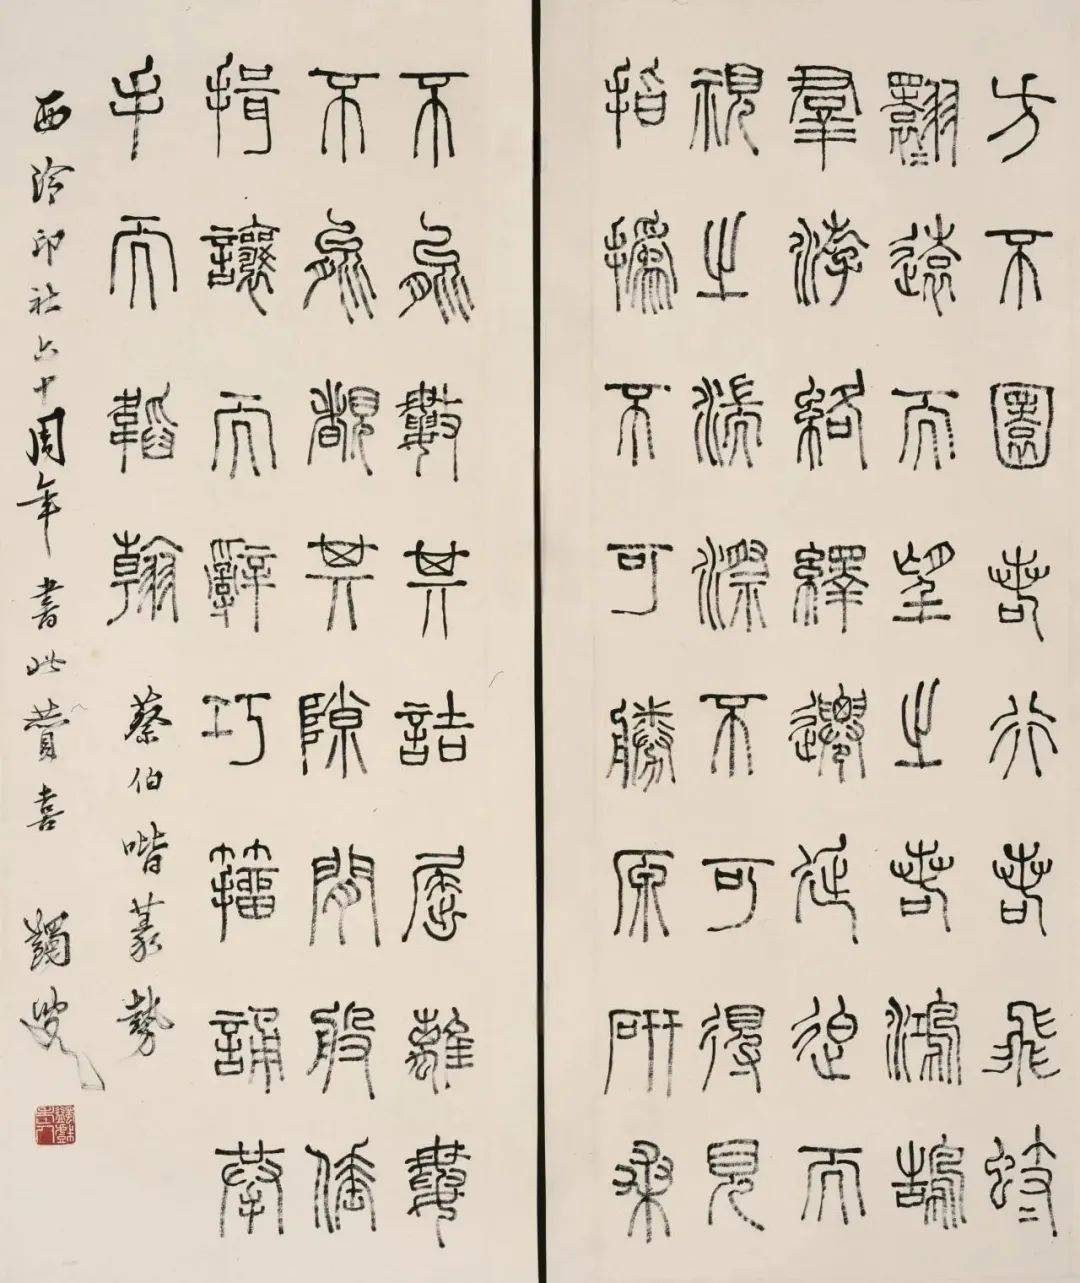 方不圜若行若飛蚑〻
翾〻遠而望之若鴻鵠
羣游絡繹遷延迫而
視之湍漈不可得見
指撝不可勝原研桑
不能數其詰屈離婁
不能覩其隙間般倕
揖讓而辭巧籀誦拱
手而韜翰 蔡伯喈篆勢
西泠印社六十周年書此贊喜 蠲叟